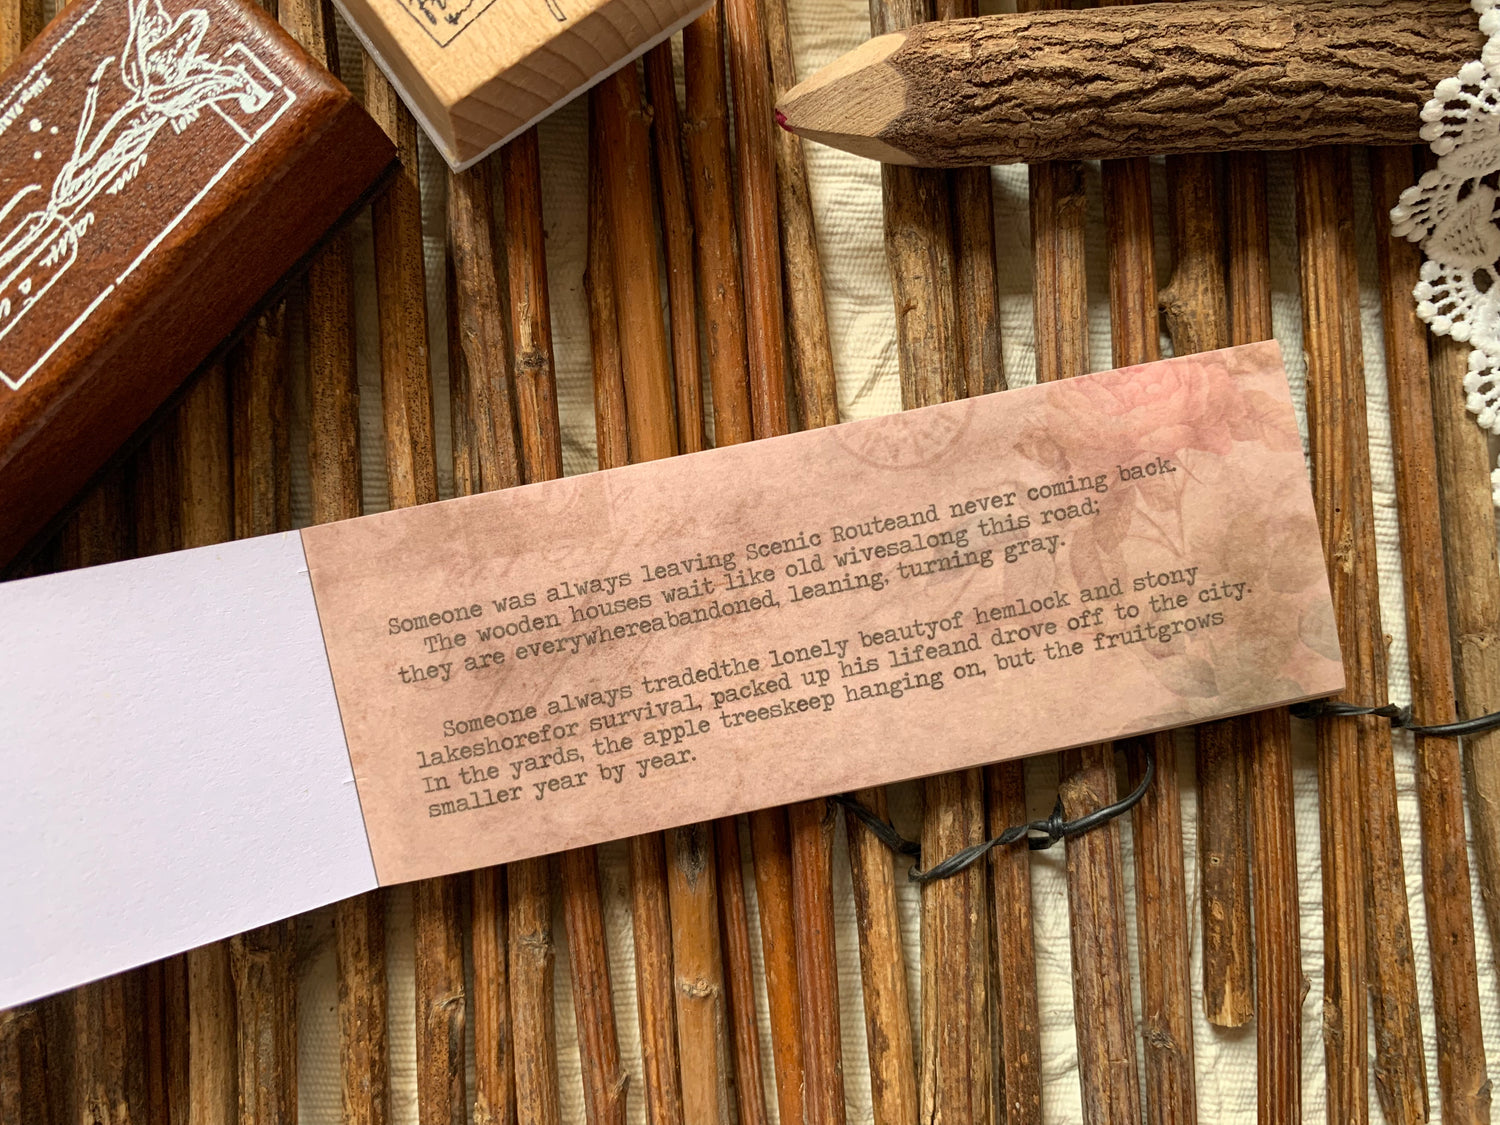 Someone was always leaving Scenic Routeand never coming back.
The wooden houses wait like old wivesalong this road;
they are everywhereabandoned, leaning, turning gray.
Someone always tradedthe lonely beautyof hemlock and stony
lakeshorefor survival, packed up his lifeand drove off to the city.
In the yards, the apple treeskeep hanging on, but the fruitgrows
smaller year by year.